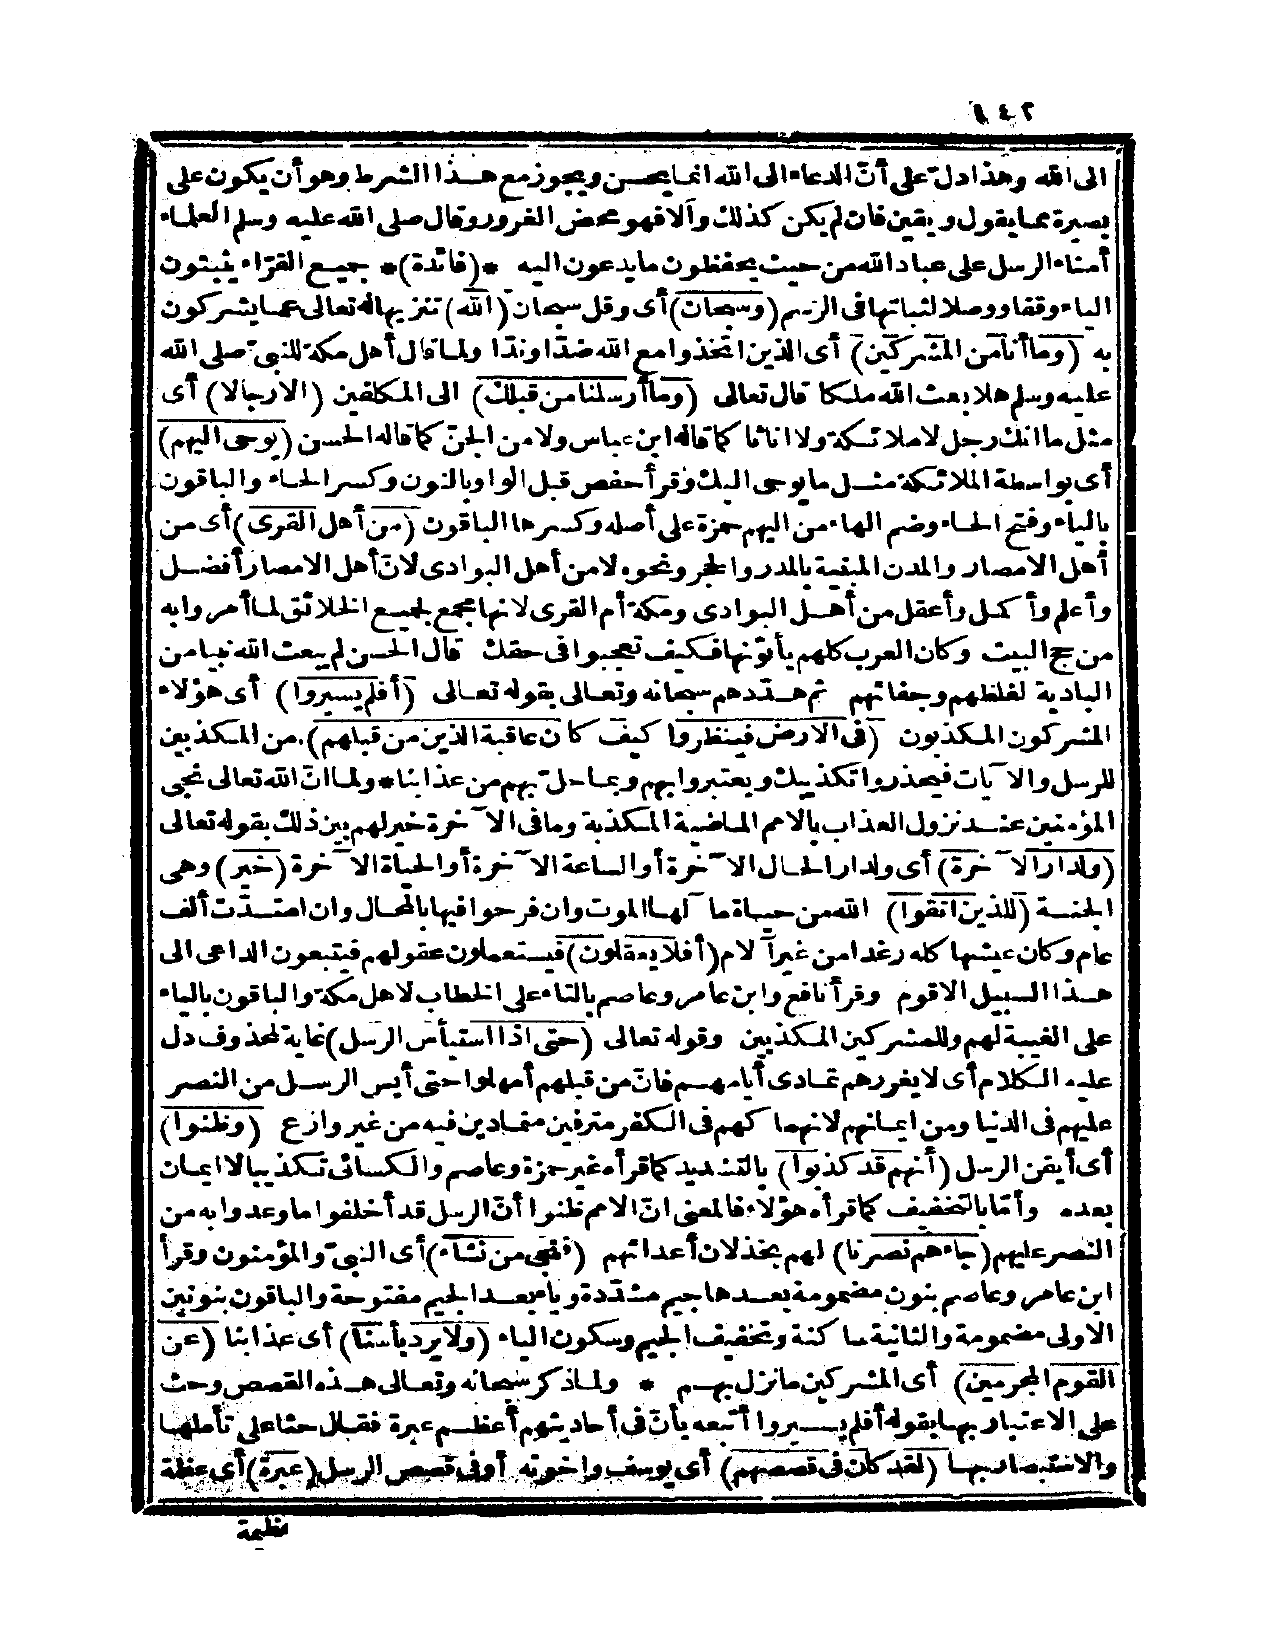 ١٤٢
الى الله وهذا دل على أنّ الدعاء الى الله انما يحسن ويجوز مع هذا الشرط وهو أن يكون على
بصيرة مما يقول ويقين فان لم يكن كذلك والا فهو محض الغرور وقال صلى الله عليه وسلم العلماء
أمناء الرسل على عباد الله من حيث يحفظون ما يدعون اليه * (فائدة) * جميع القرّاء يثبتون
الياء وقفا ووصلا لثباتها فى الرسم (وسبحان) أى وقل سبحان (الله) تنزيها له تعالى عما يشركون
به (وما أنا من المشركين) أى الذين اتخذوا مع الله ضدّا وندّا ولما قال أهل مكة للنبىّ صلى الله
عليه وسلم هلا بعث الله ملكا قال تعالى (وما أرسلنا من قبلك) الى المكلفين (الا رجالا) أى
مثل ما انك رجل لا ملائكة ولا اناثا كما قاله ابن عباس ولا من الجنّ كما قاله الحسن (يوحى اليهم)
أى بواسطة الملائكة مثل ما يوحى اليك وقرأ حفص قبل الواو بالنون وكسر الحاء والباقون
بالياء وفتح الحاء وضم الهاء من اليهم حمزة على أصله وكسرها الباقون (من أهل القرى) أى من
أهل الامصار والمدن المبنية بالمدر والحجر ونحوه لا من أهل البوادى لانّ أهل الامصار أفضل
وأعلم وأكمل وأعقل من أهل البوادى ومكة أم القرى لانها مجمع لجميع الخلائق لما أمروا به
من حج البيت وكان العرب كلهم يأتونها فكيف تعجبوا فى حقك قال الحسن لم يبعث الله نبيا من
البادية لغلظهم وجفائهم ثم هدّدهم سبحانه وتعالى بقوله تعالى (أفلم يسيروا) أى هؤلاء
المشركون المكذبون (فى الارض فينظروا كيف كان عاقبة الذين من قبلهم) من المكذبين
للرسل والآيات فيحذروا تكذيبك ويعتبروا بهم وبما حلّ بهم من عذابنا * ولما انّ الله تعالى نجى
المؤمنين عند نزول العذاب بالامم الماضية المكذبة وما فى الآخرة خير لهم بين ذلك بقوله تعالى
(ولدار الآخرة) أى ولدار الحال الآخرة أو الساعة الآخرة أو الحياة الآخرة (خير) وهى
الجنة (للذين اتقوا) الله من حياة مآلها الموت وان فرحوا فيها بالمحال وان امتدّت ألف
عام وكان عيشها كله رغدا من غير آلام (أفلا يعقلون) فيستعملون عقولهم فيتبعون الداعى الى
هذا السبيل الاقوم وقرأ نافع وابن عامر وعاصم بالتاء على الخطاب لاهل مكة والباقون بالياء
على الغيبة لهم وللمشركين المكذبين وقوله تعالى (حتى اذا استيأس الرسل) غاية لمحذوف دل
عليه الكلام أى لا يغررهم تمادى أيامهم فانّ من قبلهم أمهلوا حتى أيس الرسل من النصر
عليهم فى الدنيا ومن ايمانهم لانهما كهم فى الكفر مترفين متمادين فيه من غير وازع (وظنوا)
أى أيقن الرسل (أنهم قد كذبوا) بالتشديد كما قرأه غير حمزة وعاصم والكسائى تكذيبا لا ايمان
بعده وأمّا بالتخفيف كما قرأه هؤلاء فالمعنى انّ الامم ظنوا أنّ الرسل قد أخلفوا ما وعدوا به من
النصر عليهم (جاءهم نصرنا) لهم بخذلان أعدائهم (فنجى من نشاء) أى النبىّ والمؤمنون وقرأ
ابن عامر وعاصم بنون مضمومة بعدها جيم مشدّدة وياء بعد الجيم مفتوحة والباقون بنونين
الاولى مضمومة والثانية ساكنة وتخفيف الجيم وسكون الياء (ولا يرد بأسنا) أى عذابنا (عن
القوم المجرمين) أى المشركين ما نزل بهم * ولما ذكر سبحانه وتعالى هذه القصص وحث
على الاعتبار بها بقوله أفلم يسيروا أتبعه بأنّ فى أحاديثهم أعظم عبرة فقال حثا على تأملها
والاستبصار بها (لقد كان فى قصصهم) أى يوسف واخوته أو فى قصص الرسل (عبرة) أى عظة
عظيمة